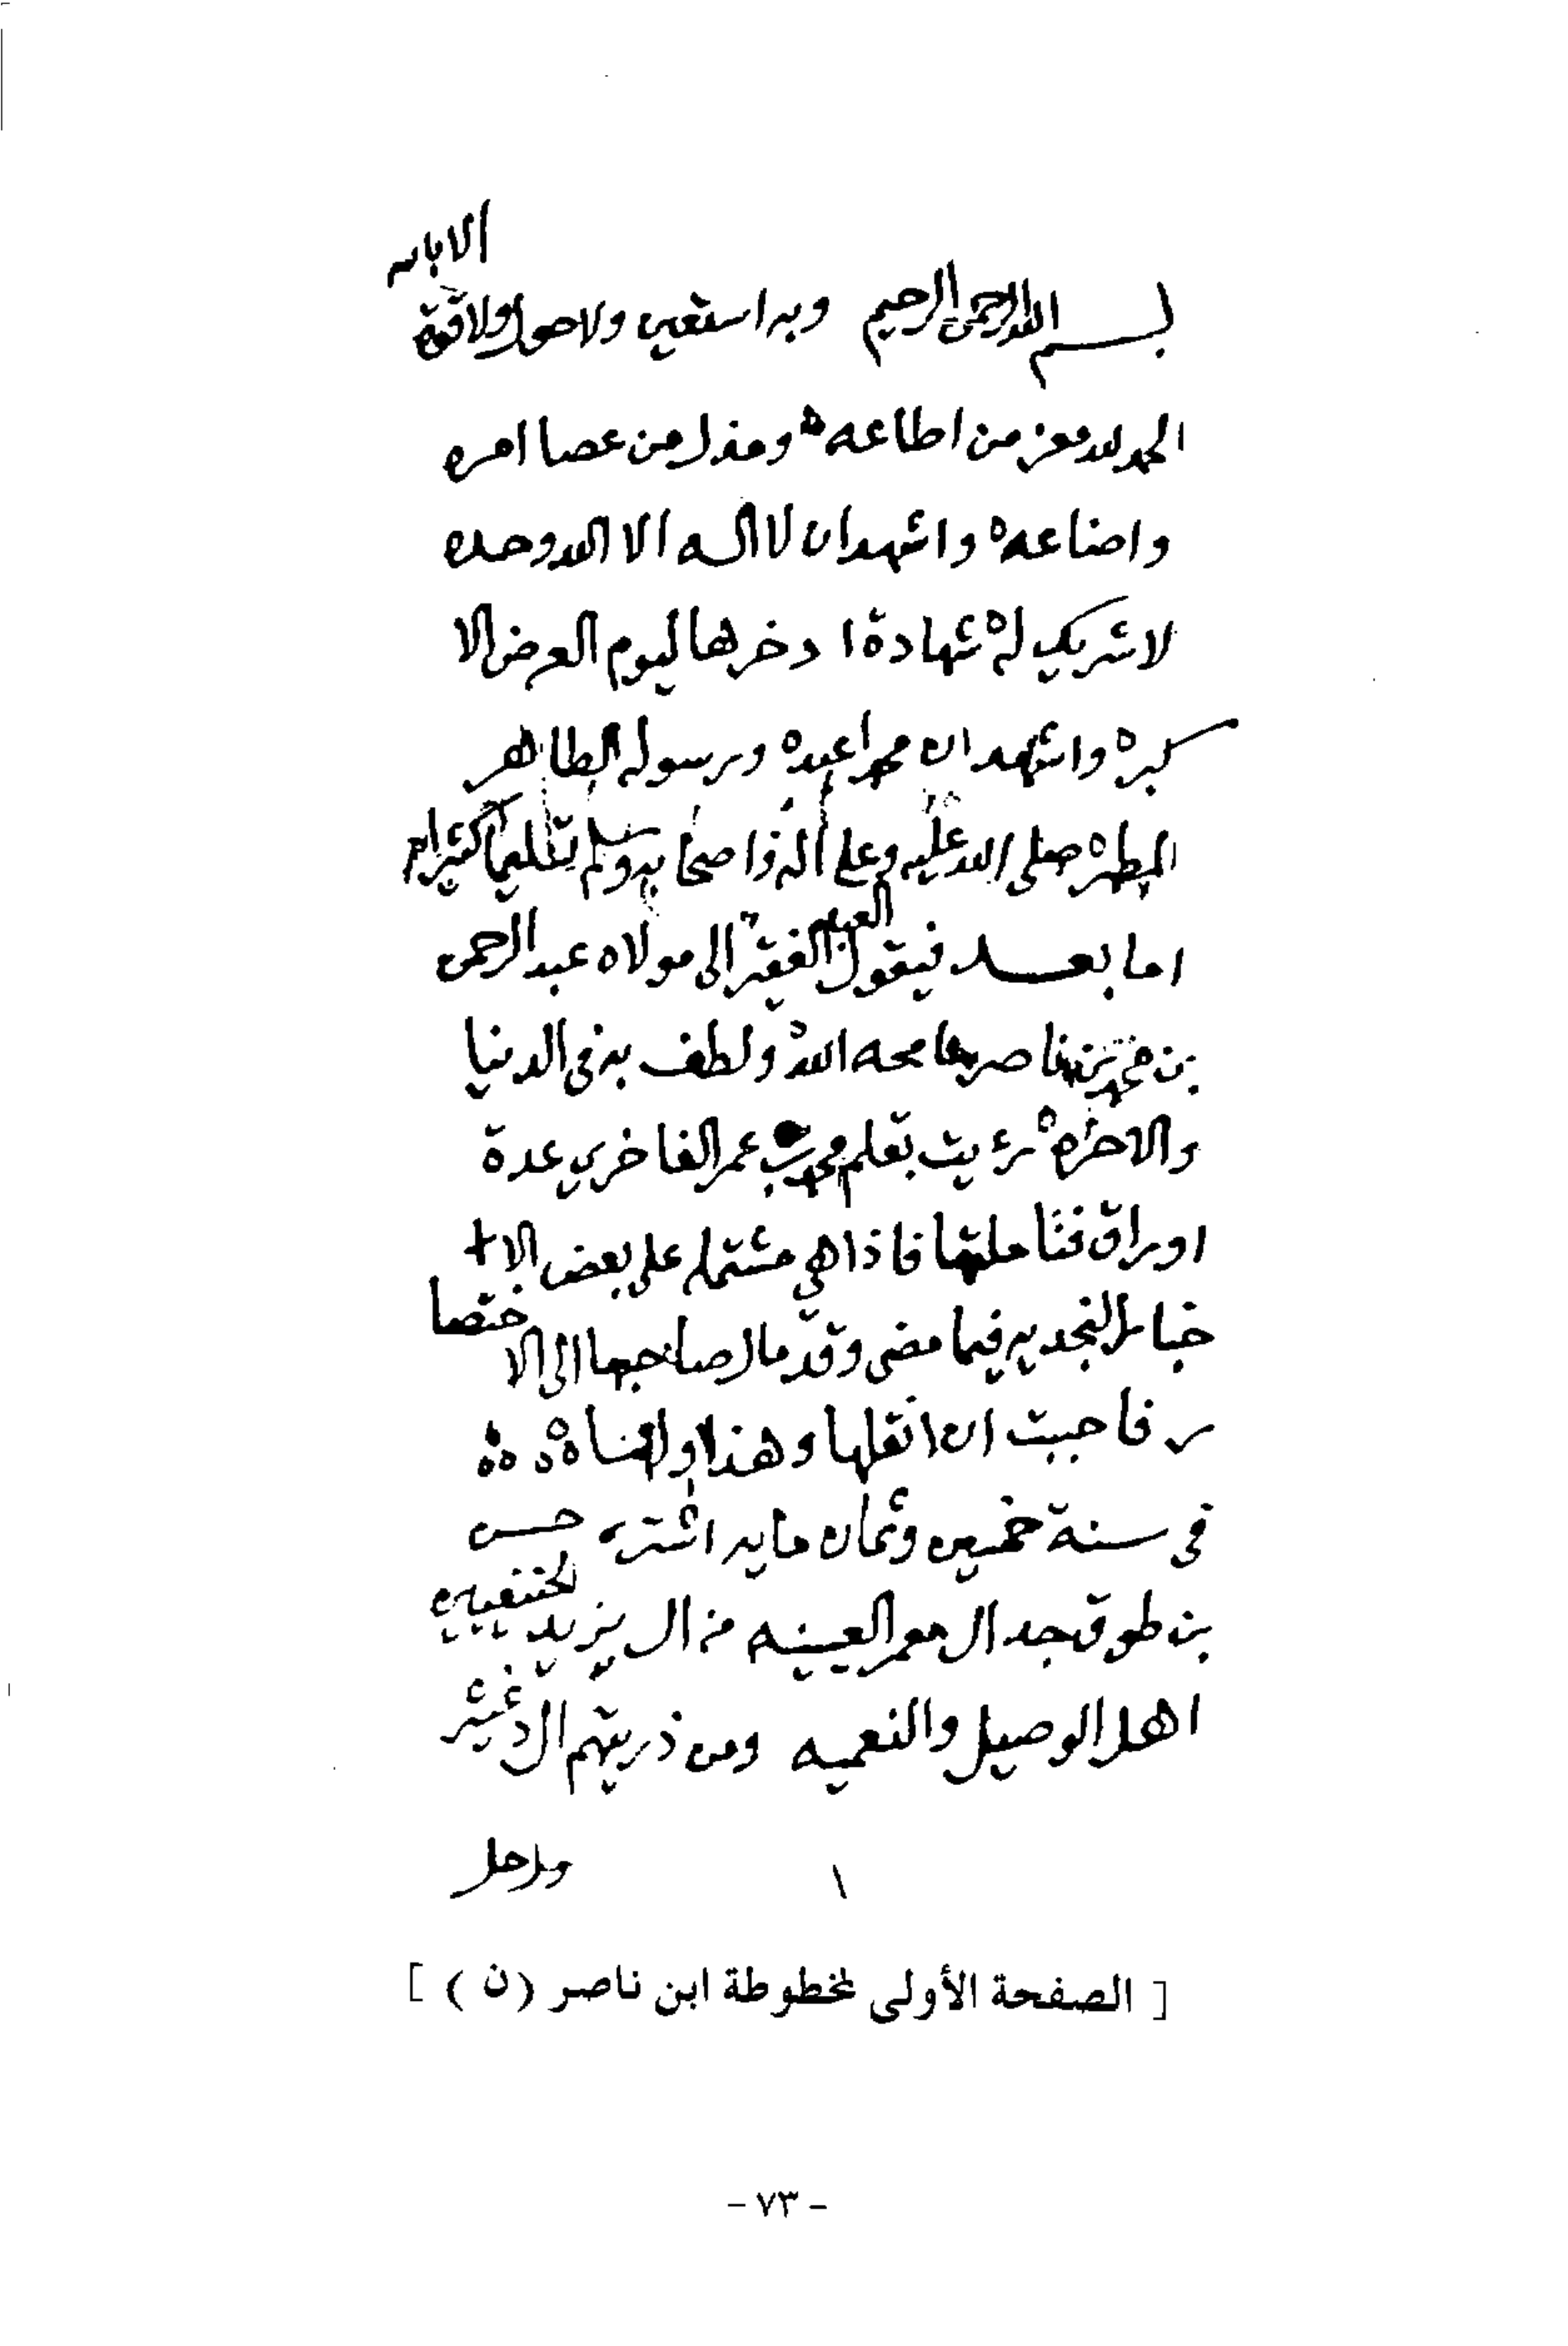 الا بالله
بسم الله الرحمن الرحيم وبه استعين ولا حول ولا قوة
الحمد لله معز من اطاعه ومذل من عصا امره
واضاعه واشهد ان لا اله الا الله وحده
لا شريك له شهادة ادخرها ليوم العرض الا
كبره واشهد ان محمدا عبده ورسوله الطاهر
المطهر صلى الله عليه وعلى اله واصحابه وسلم تسليما كثيرا
اما بعد فيقول العبد الفقير الى مولاه عبد الرحمن
بن محمد بن ناصر سامحه الله ولطف به في الدنيا
والاخره رءيت بقلم محمد بن عمر الفاخري عدة
اوراق فتاملتها فاذا هي مشتمله على بعض الا
خبار النجديه فيما مضى وقد مال صاحبها الى الاختصا
ر فاحببت ان انقلها وهذا اولها
في سنة خمسين وثمان مايه اشترى حسن
بن طوق جد ال معمر العيينه من ال يزيد الحنفيين
اهل الوصيل والنعميه ومن ذريتهم ال دغيثر
ورحل
١
[ الصفحة الأولى لمخطوطة ابن ناصر (ن) ]
- ٧٣ -